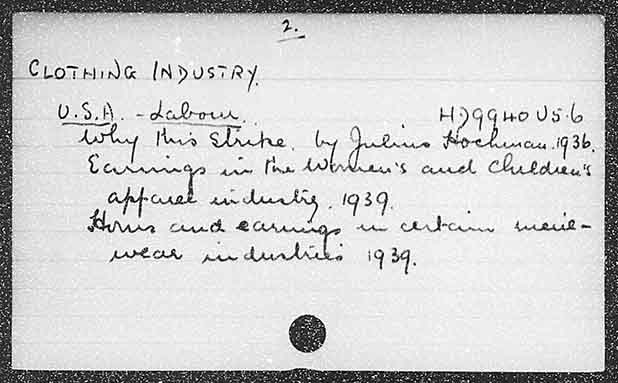 2.
CLOTHING INDUSTRY.
U.S.A. - Labour. HD9940 U5.6
Why this Strike. by Julius Hochman. 1936.
Earnings in the Women's and Children's
apparel industry. 1939.
Hours and earnings in certain mens-
wear industries 1939.